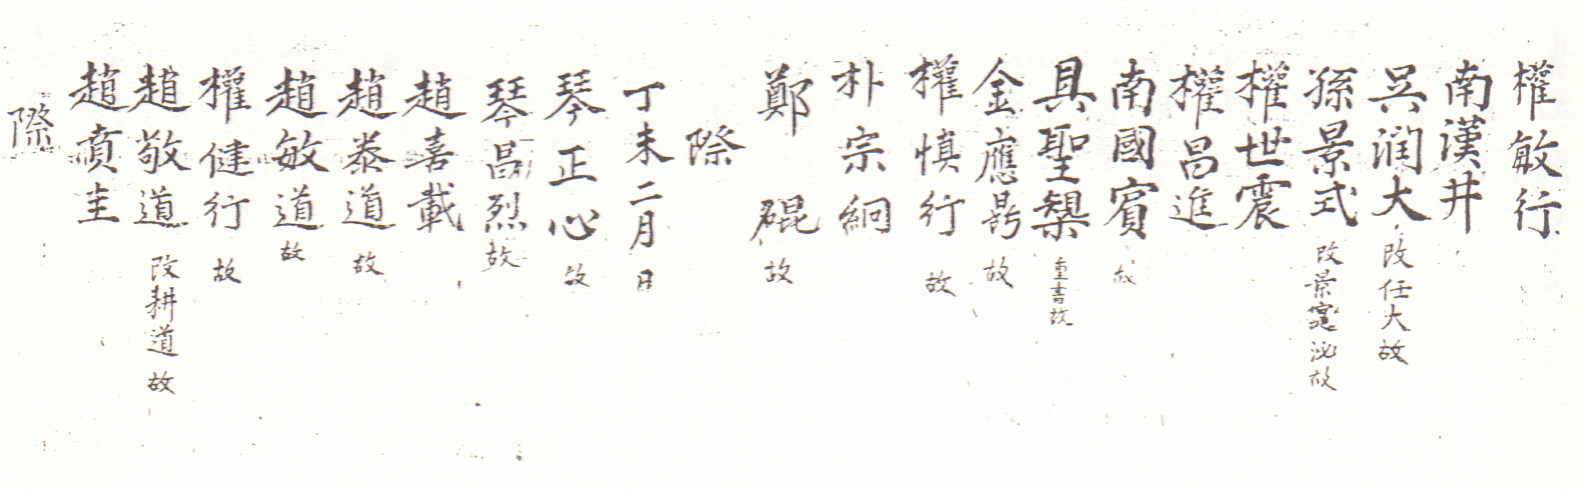 權敏行
南漢井
吳潤大 改任大故
孫景式 改景寔 泌故
權世震
權昌進
南國賓 故
具聖槼 重書故
金應鼎 故
權慎行 故
朴宗絅
鄭碮 故
際
丁未二月 日
琴正心 故
琴昌烈 故
趙喜載
趙泰道 故
趙敏道 故
權健行 故
趙敬道 改耕道 故
趙賁圭
際